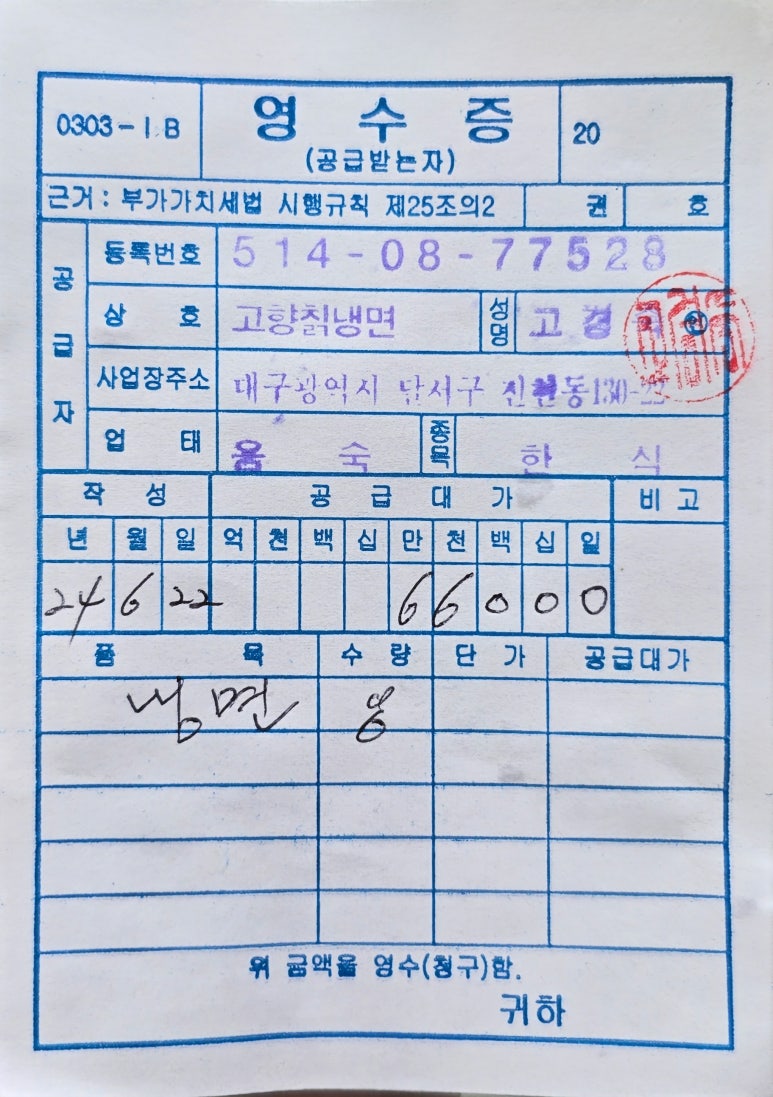 0303-1B 영수증 20
(공급받는자)
근거 : 부가가치세법 시행규칙 제25조의2 권 호
공급자
등록번호 514-08-77528
상 호 고향칡냉면 성명 고경 인
사업장주소 대구광역시 달서구 진천동130-
업 태 음 숙 종목 한 식
작 성 공 급 대 가 비 고
년 월 일 억 천 백 십 만 천 백 십 일
24 6 22 6 6 0 0 0
품 목 수 량 단 가 공급대가
냉면 8
위 금액을 영수(청구)함.
귀하